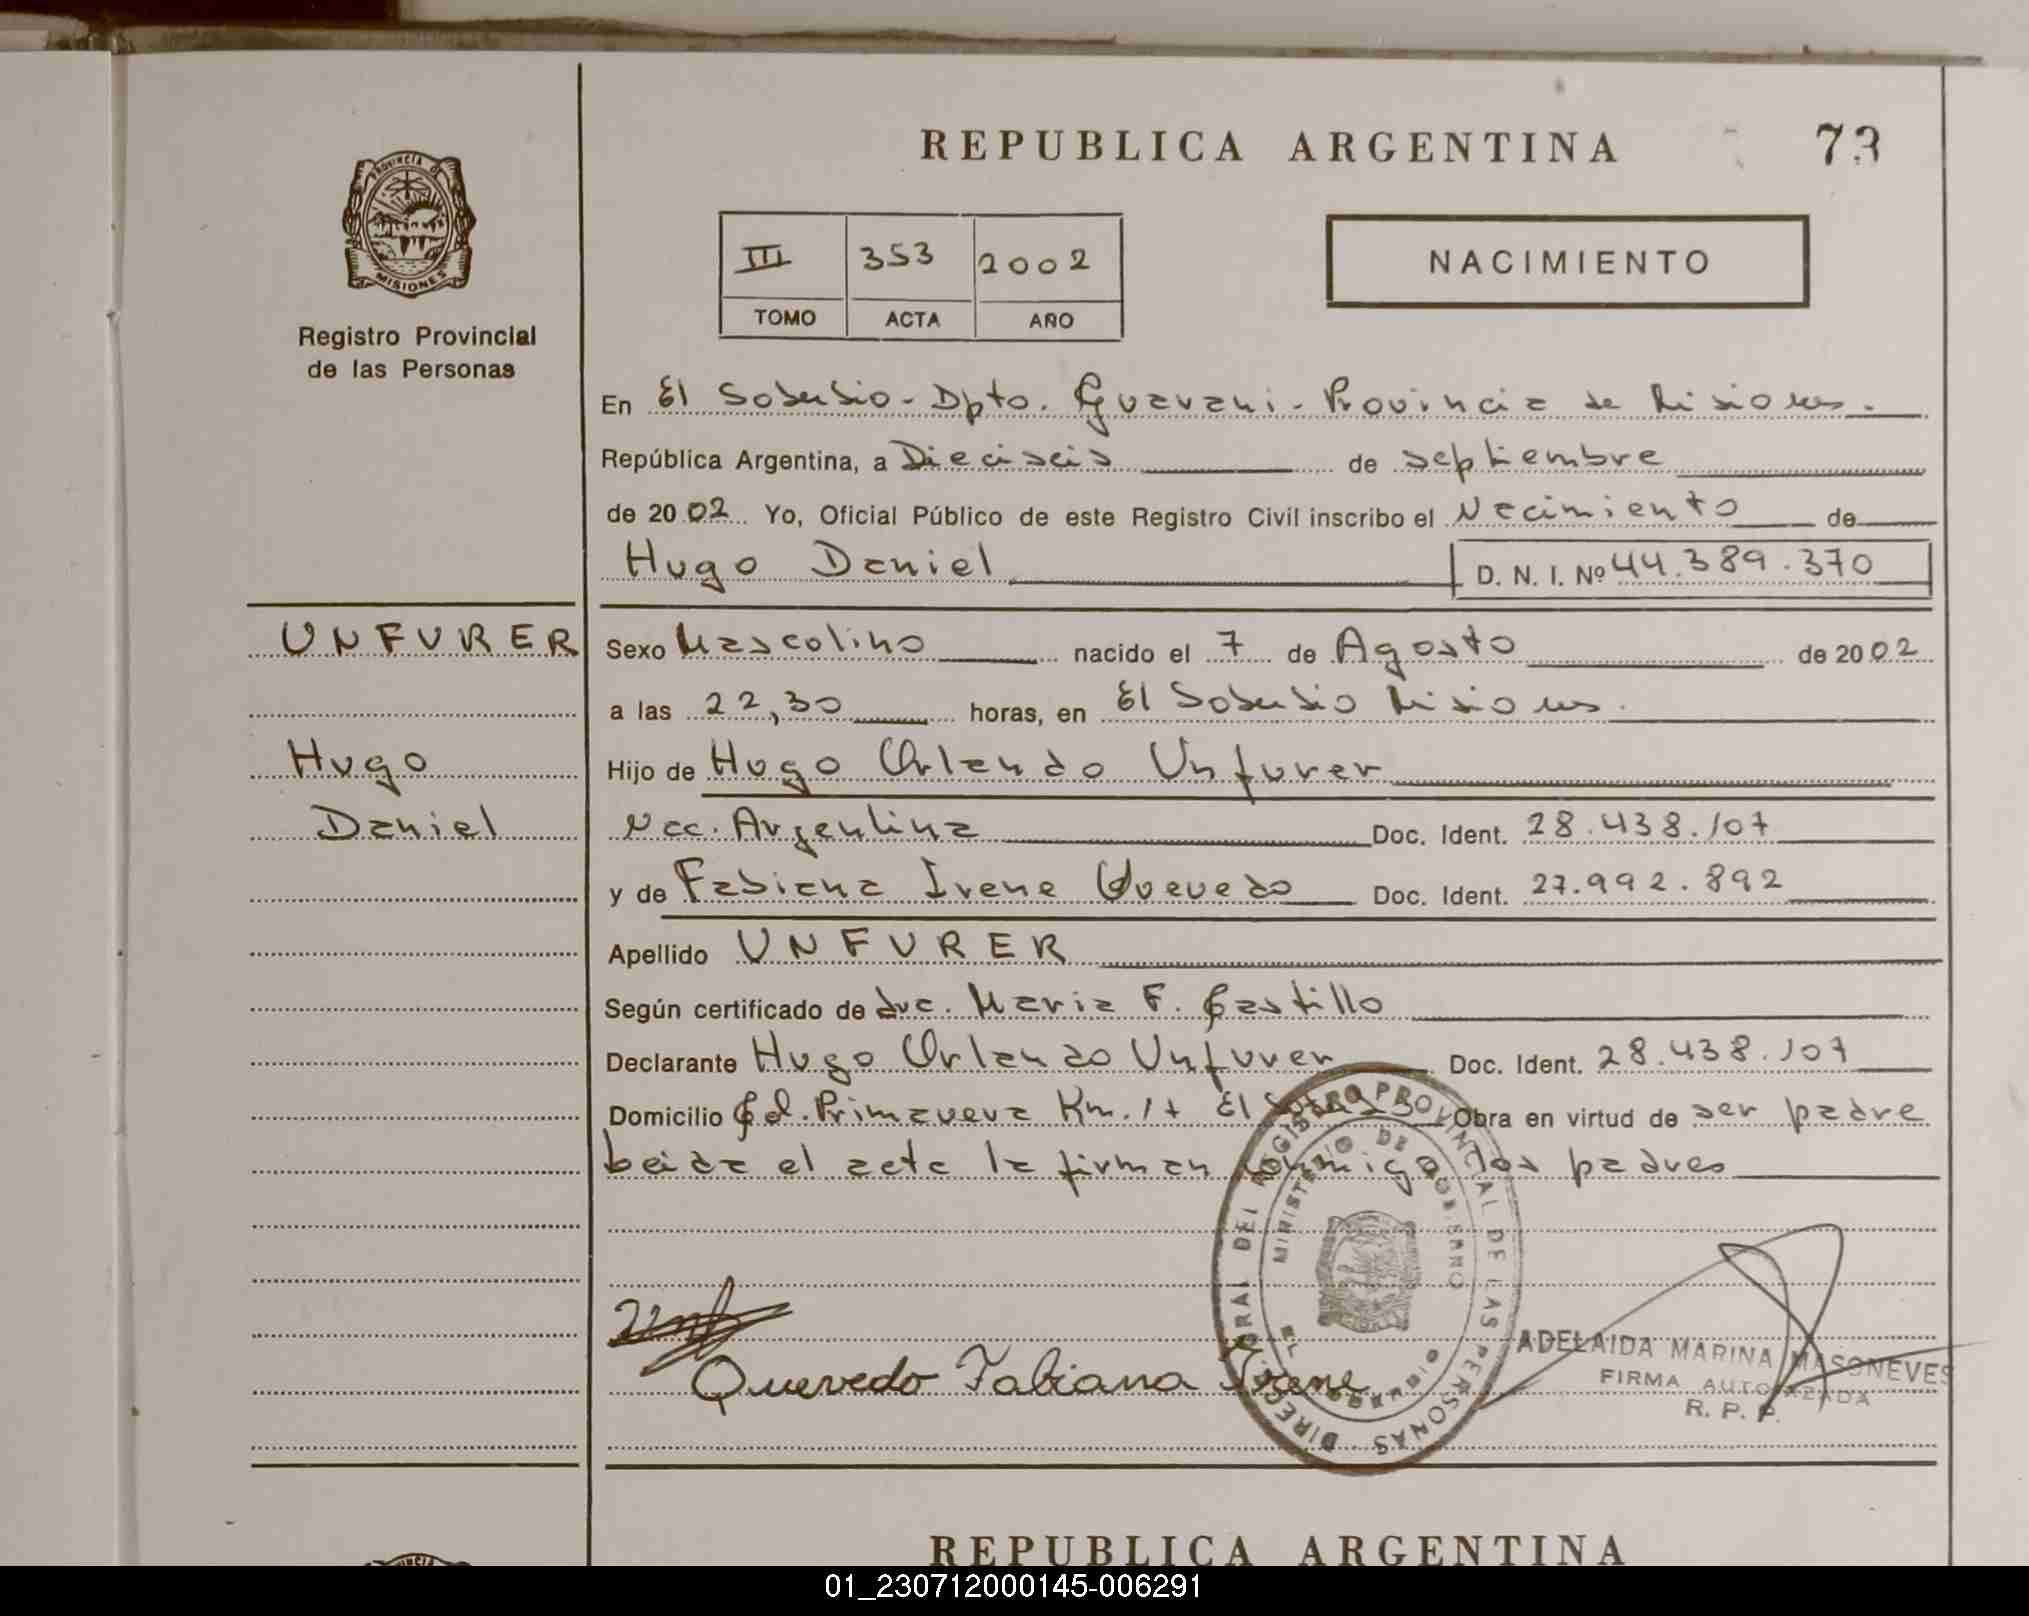 REPUBLICA ARGENTINA
73
PROVINCIA DE
MISIONES
Registro Provincial
de las Personas
III 353 2002
TOMO ACTA AÑO
NACIMIENTO
En El Soberbio - Dpto. Guarani - Provincia de Misiones.
República Argentina, a Dieciseis de septiembre
de 2002 Yo, Oficial Público de este Registro Civil inscribo el Nacimiento de
Hugo Daniel D. N. I. Nº 44.389.370
UNFURER
Hugo
Daniel
Sexo Mascolino nacido el 7 de Agosto de 2002
a las 22,30 horas, en El Soberbio Misiones.
Hijo de Hugo Orlando Unfurer
Nac. Argentina Doc. Ident. 28.438.107
y de Fabiana Irene Quevedo Doc. Ident. 27.992.892
Apellido UNFURER
Según certificado de Maria F. Castillo
Declarante Hugo Orlando Unfurer Doc. Ident. 28.438.107
Domicilio Col. Primavera Km. 17 El Obra en virtud de ser padre
beida el acta la firman conmigo los padres
DIRECCION GRAL DEL REGISTRO PROVINCIAL DE LAS PERSONAS
MINISTERIO DE GOBIERNO
EL SOBERBIO
Quevedo Fabiana Irene
ADELAIDA MARINA MASONEVES
FIRMA AUTORIZADA
R. P. P.
REPUBLICA ARGENTINA
01_230712000145-006291